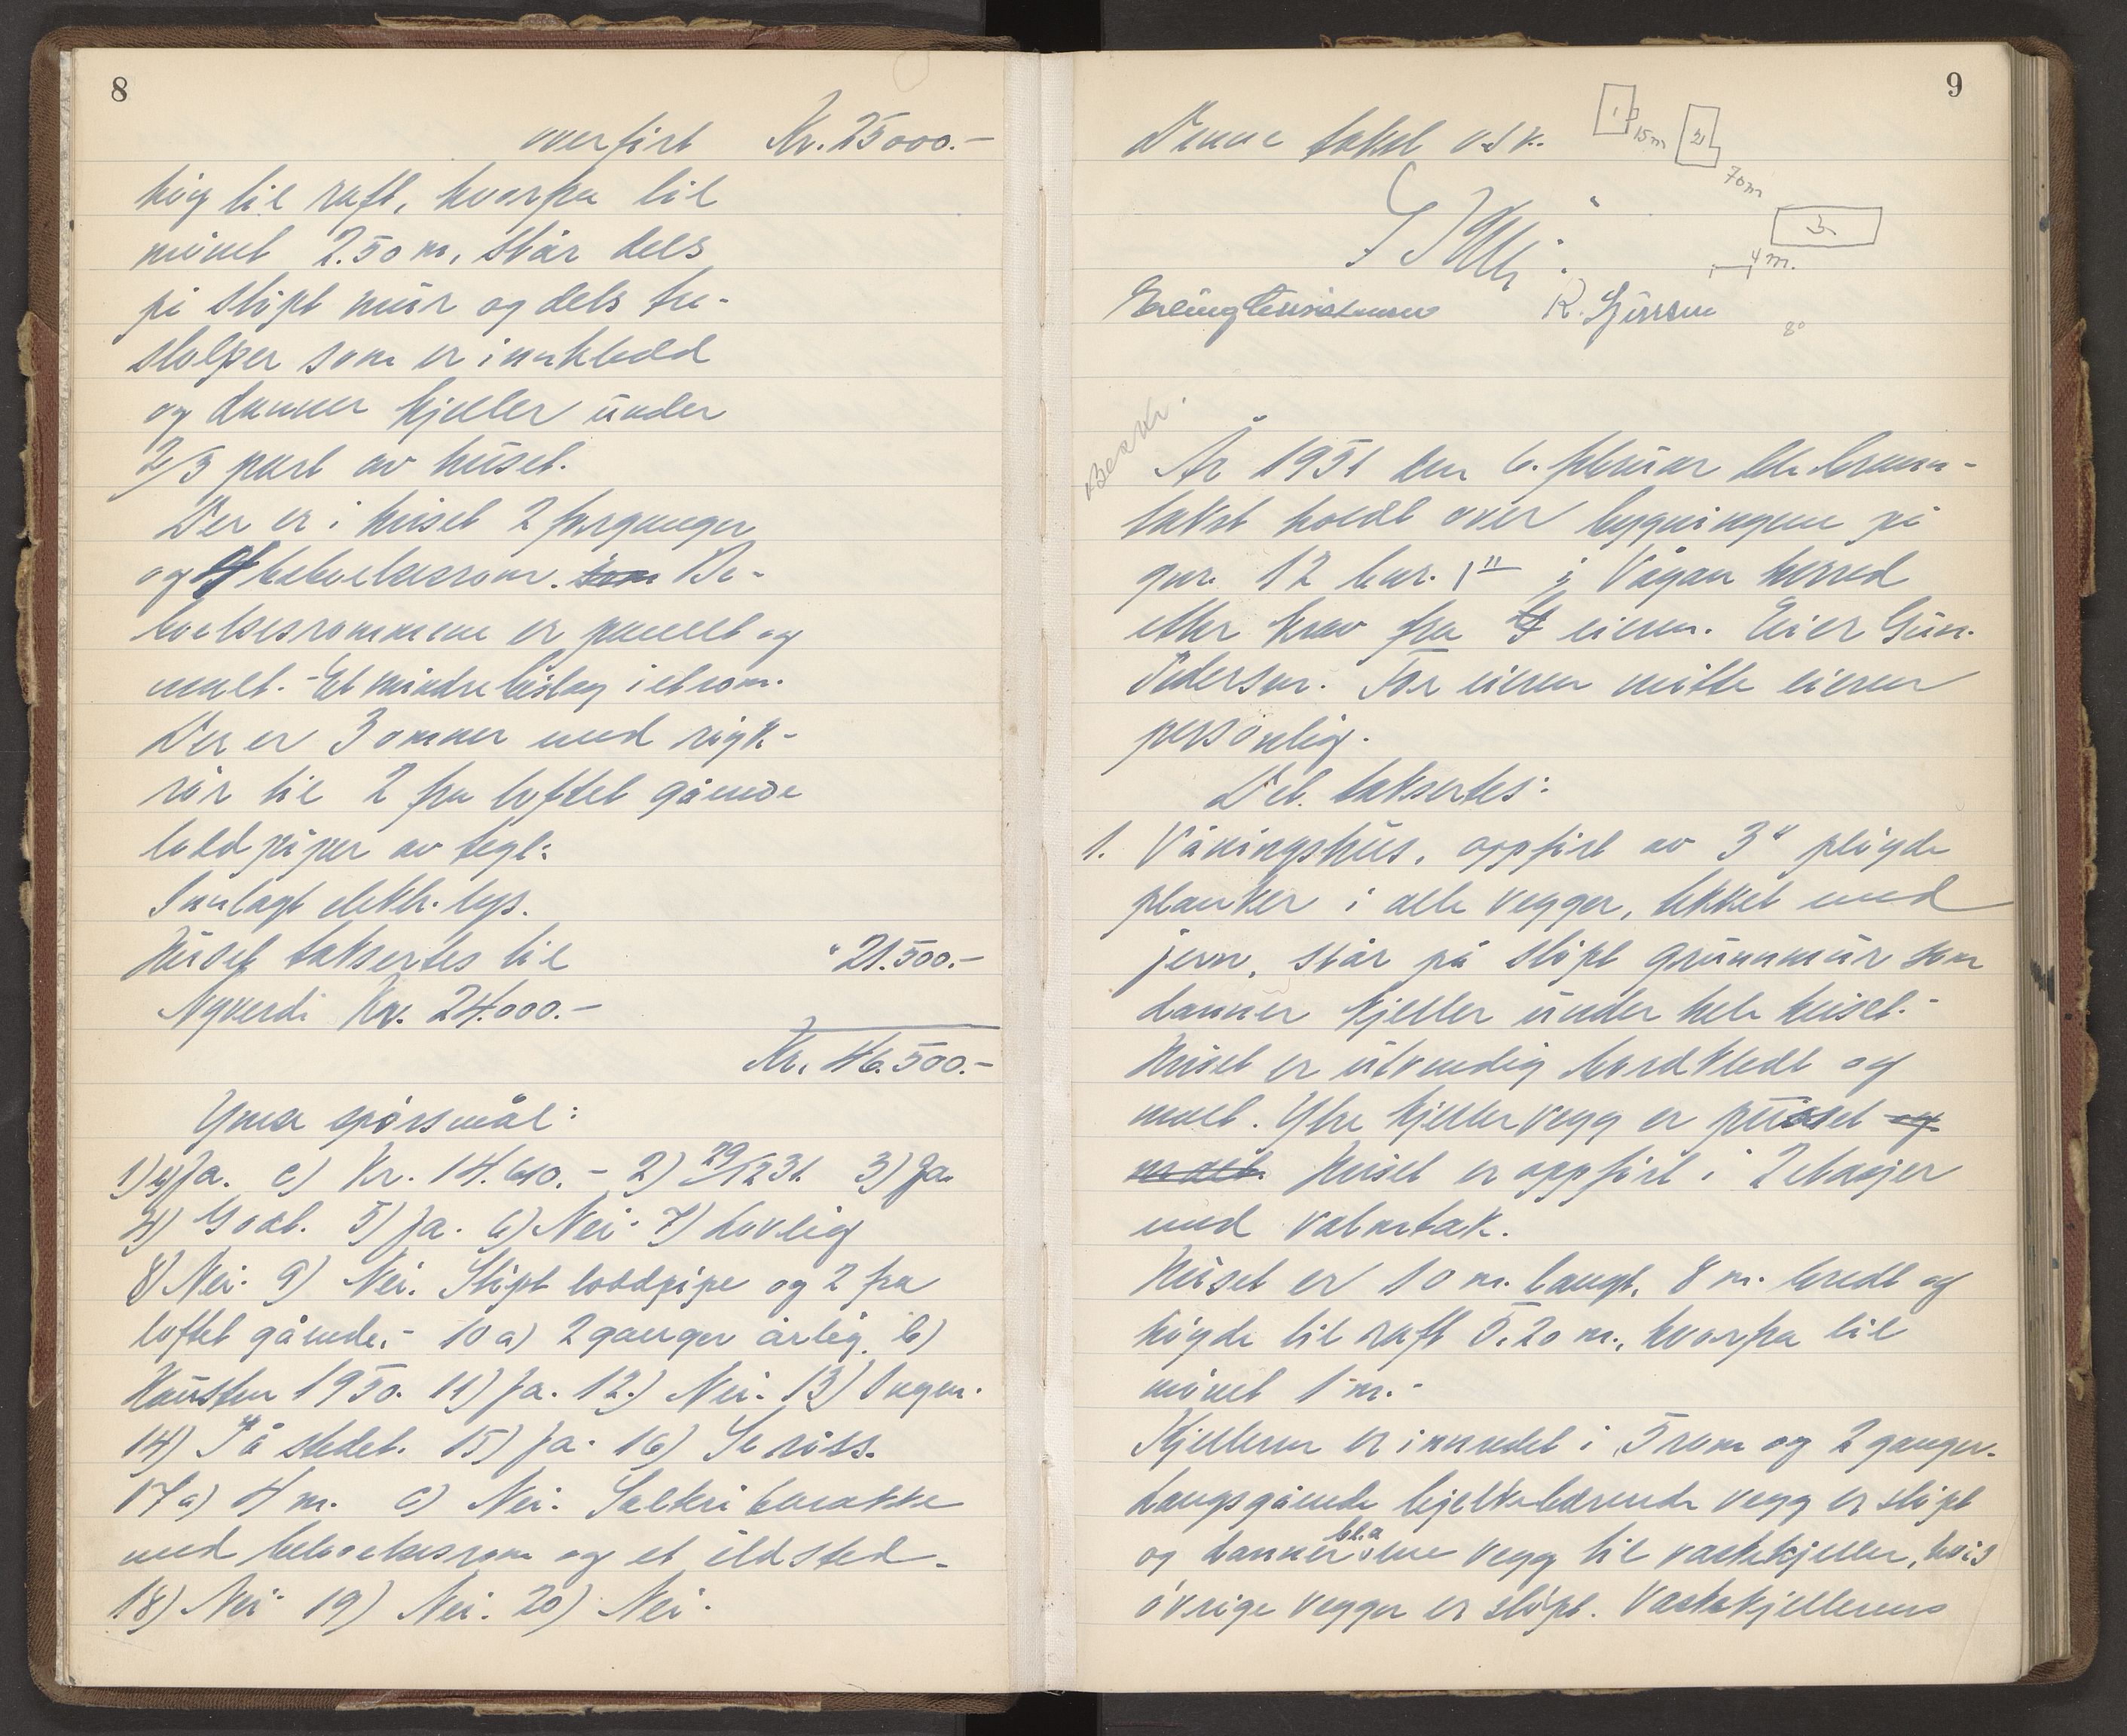 8
overført Kr. 25000.-
høg til raft, hvorfra til
mønet 2.50 m, står dels
på støpt mur og dels tre-
stolper som er innkledd
og danner kjeller under
2/3 part av huset.
Der er i huset 2 forganger
og 4 beboelsesrom. Be-
boelsesrommene er panelt og
malt. - Et mindre bislag i et rom.
Der er 3 omner med røyk-
rør til 2 fra loftet gående
loddpiper av tegl.
Innlagt elektr. lys.
Huset taksertes til " 21.500.-
Nyverdi Kr. 24.000.-
Kr. 46.500.-
Ymse spørsmål:
1) b) Ja. c) Kr. 14.610.- 2) 29/12 31. 3) Ja.
4) Godt. 5) Ja. 6) Nei. 7) Lovlig
8) Nei. 9) Nei. Støpt loddpipe og 2 fra
loftet gående.- 10 a) 2 ganger årlig. b)
Høusten 1950. 11) Ja. 12.) Nei. 13) Ingen.
14) På stedet. 15) Ja. 16) Se riss.
17 a) 4 m. c) Nei. Salteribarakke
med beboelsesrom og et ildsted.
18) Nei. 19) Nei. 20) Nei.
9
Denne takst vedk.
1 15m 2 70m
3
4 m.
Erling Christensen R.
80
År 1951 den 6. februar ble brann-
takst holdt over bygningene på
gnr. 12 bnr. 1 i Vågan herred
etter krav fra eieren. Eier Gun.
Pedersen. For eieren møtte eieren
personlig.
Det taksertes:
1. Våningshus, oppført av 3" pløyde
planker i alle vegger, tekket med
jern, står på støpt grunnmur som
danner kjeller under hele huset.-
Huset er utvendig bordkledt og
malt. Ytre kjellervegg er pusset og
malt. Huset er oppført i 2 etasjer
med valmtak.
Huset er 10 m. langt, 8 m. bredt og
høyde til raft 5.20 m., hvorfra til
mønet 1 m.-
Kjelleren er innredet i 5 rom og 2 ganger.
Langsgående bjelkebærende vegg er støpt
og danner bl.a ene vegg til vaskekjeller, hvis
øvrige vegger er støpt. Vaskekjellerens